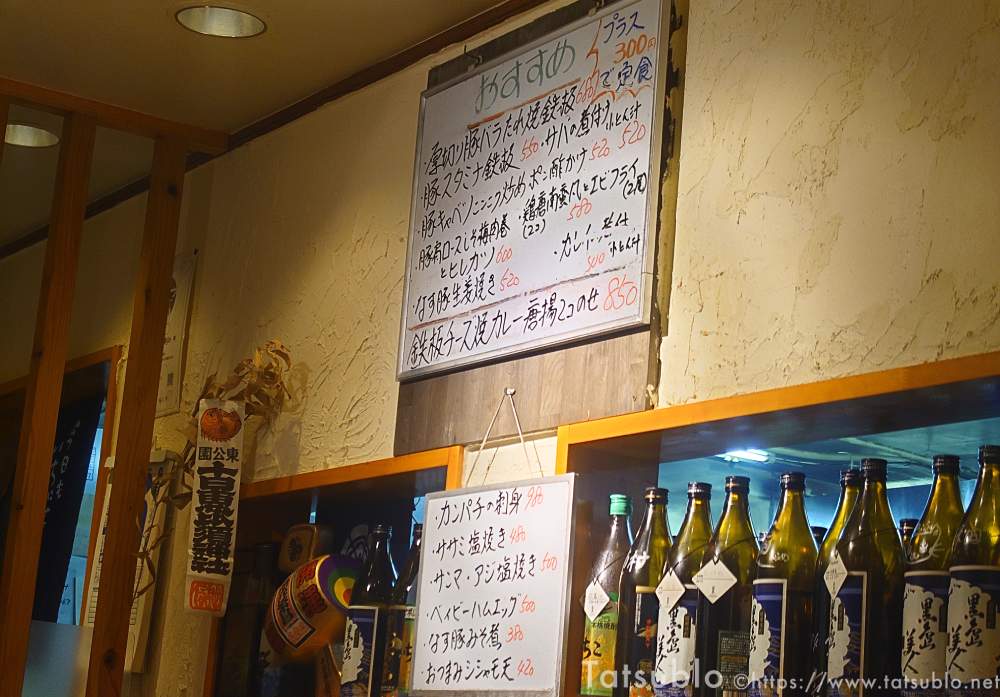 おすすめ
プラス
300円
で定食
・厚切り豚バラたれ焼鉄板 680
・豚スタミナ鉄板 550
・サバの煮付 小とん汁 520
・豚キャベツニンニク炒めポン酢かけ 520
・豚肩ロースしそ梅肉巻
とヒレカツ 600
・鶏唐南蛮風とエビフライ
(2コ) 580 (2尾)
・なす豚生姜焼き 520
・カレイ煮付
小とん汁
鉄板チーズ焼カレー唐揚2コのせ 850
・カンパチの刺身 980
・ササミ塩焼き 480
・サンマ・アジ塩焼き 500
・ベイビーハムエッグ 500
・なす豚みそ煮 380
・おつまみシシャモ天 420
東公園
十日恵比須神社
黒岳
美人
黒岳
美人
Tatsublo ©https://www.tatsublo.net